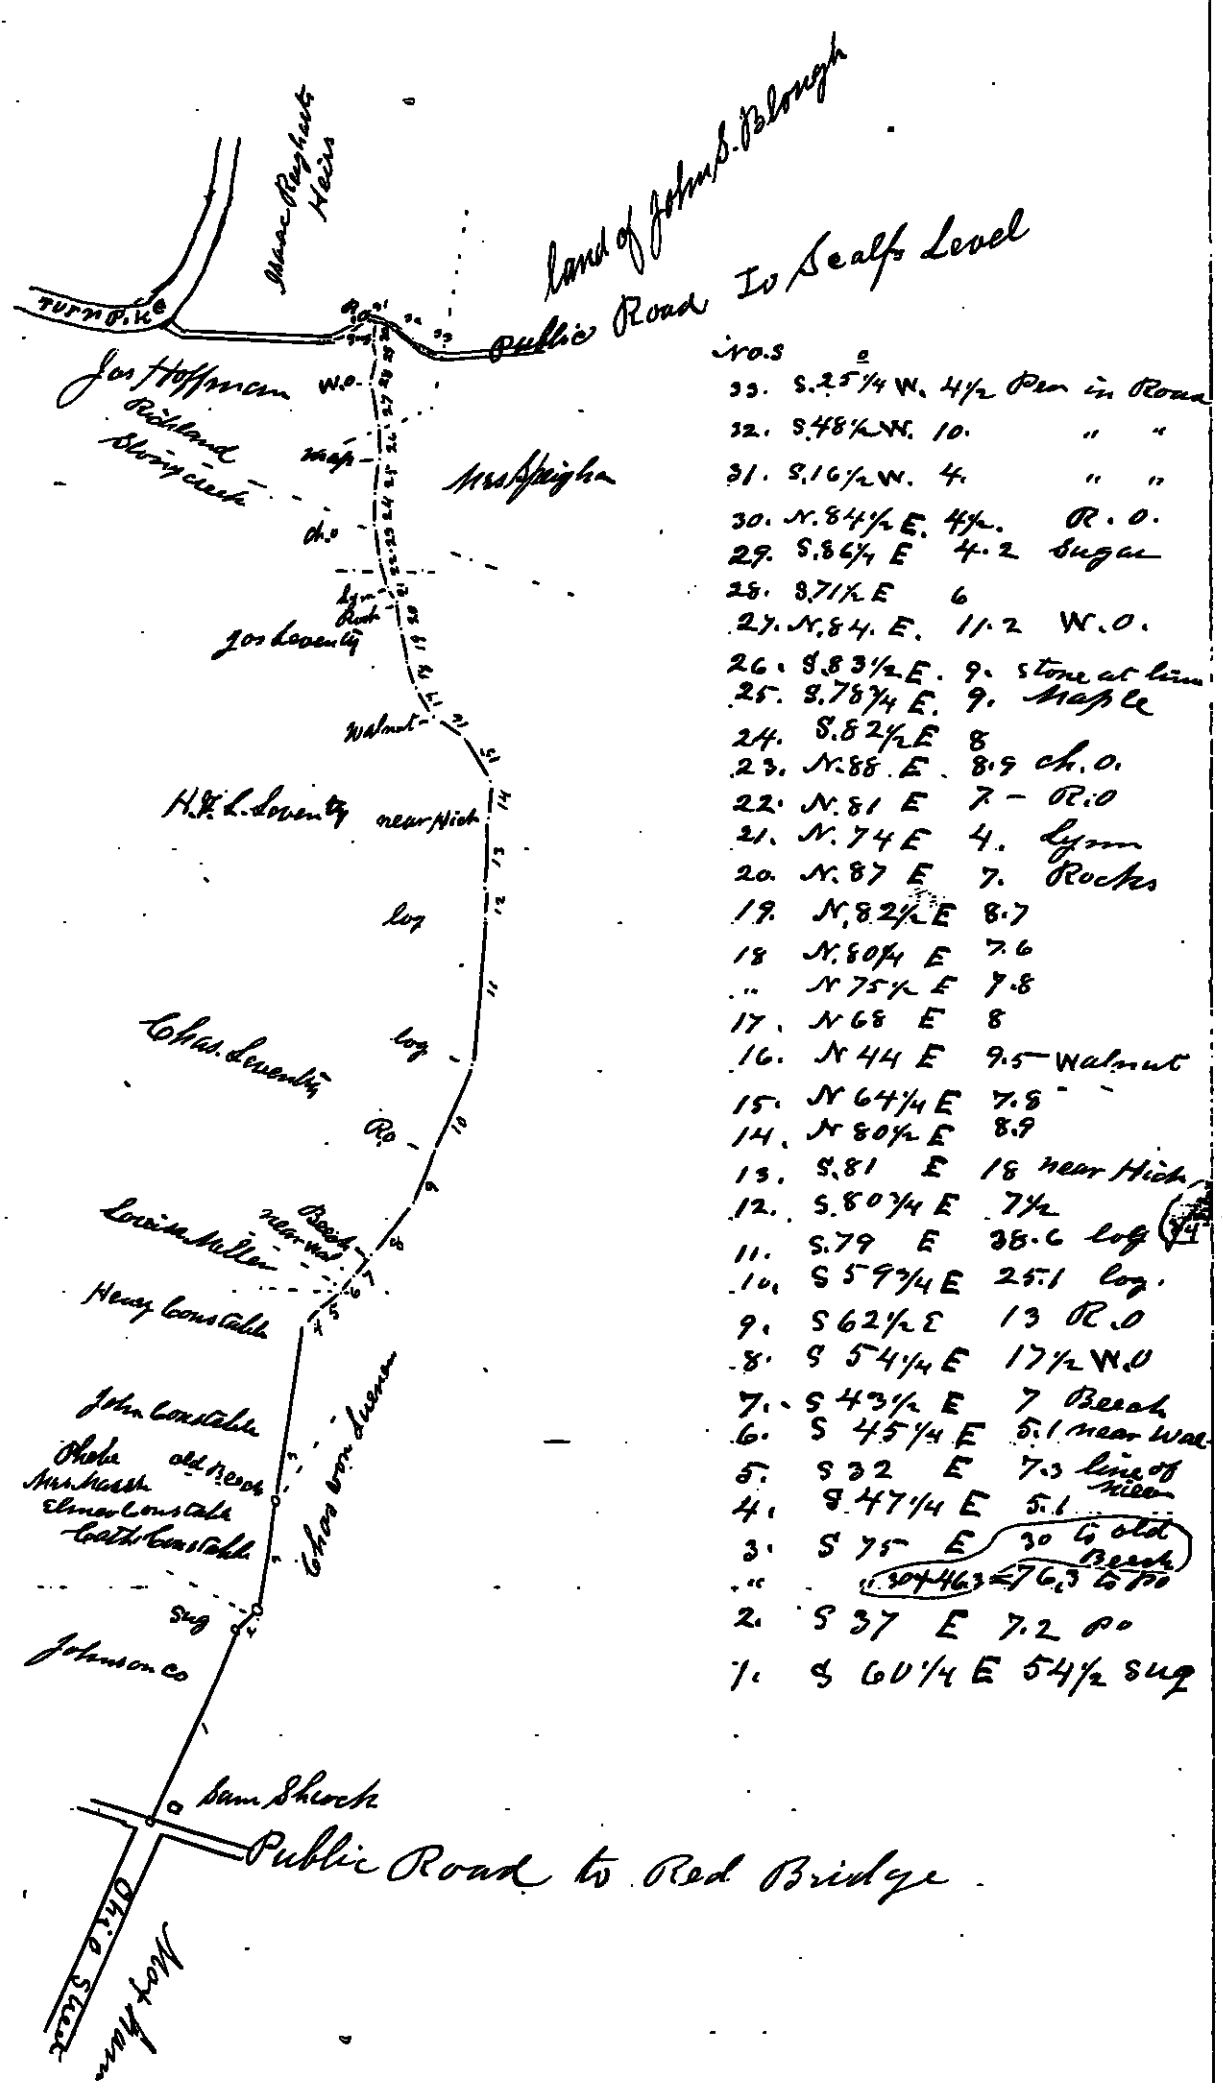 land of John S. Blough
Isaac
Heirs
Public Road To Scalp Level
TURNP.Ke
R.O
Jos Hoffman
W.O.
Richland
Stonycreek
map
Mrs
ch.o
Lyn
Rock
Jos Leventy
Walnut
H.F.L. Leventy
near Hick
log
Chas. Leventy
log
Ro
Louisa Miller
Beech
near wal
Henry Constable
John Constable
Phebe
old Beech
Mrs. Marsh
Elmer Constable
Cath Constable
Chas von Lunen
sug
Johnson co
Sam Shrock
Public Road to Red Bridge.
Ohio Street
Moxham
Nos
33. S.25 1/4 W. 4 1/2 Per in Road
32. S.48 1/2 W. 10. " "
31. S.16 1/2 W. 4. " "
30. N.84 1/2 E. 4 1/2. R.O.
29. S.86 1/4 E 4.2 Sugar
28. S.71 1/2 E 6
27. N.84. E. 11.2 W.O.
26. S.83 1/2 E. 9. stone at line
25. S.78 3/4 E. 9. Maple
24. S.82 1/2 E 8
23. N.88 E. 8.9 ch.o.
22. N.81 E 7 - R.O
21. N.74 E 4. Lynn
20. N.87 E 7. Rocks
19. N.82 1/2 E 8.7
18 N.80 1/4 E 7.6
" N 75 1/2 E 7.8
17. N 68 E 8
16. N 44 E 9.5 Walnut
15. N 64 1/4 E 7.8
14. N 80 1/2 E 8.9
13. S.81 E 18 near Hick
12. S.80 3/4 E 7 1/2
11. S.79 E 38.6 log
10. S 59 3/4 E 25.1 log.
9. S 62 1/2 E 13 R.O
8. S 54 1/4 E 17 1/2 W.O
7. S 43 1/2 E 7 Beech
6. S 45 1/4 E 5.1 near Wal
5. S 32 E 7.3 line of
4. S.47 1/4 E 5.1
3. S 75 E 30 to old
Beech
" " 30+46.3=76.3 to po
2. S 37 E 7.2 po
1. S 60 1/4 E 54 1/2 sug